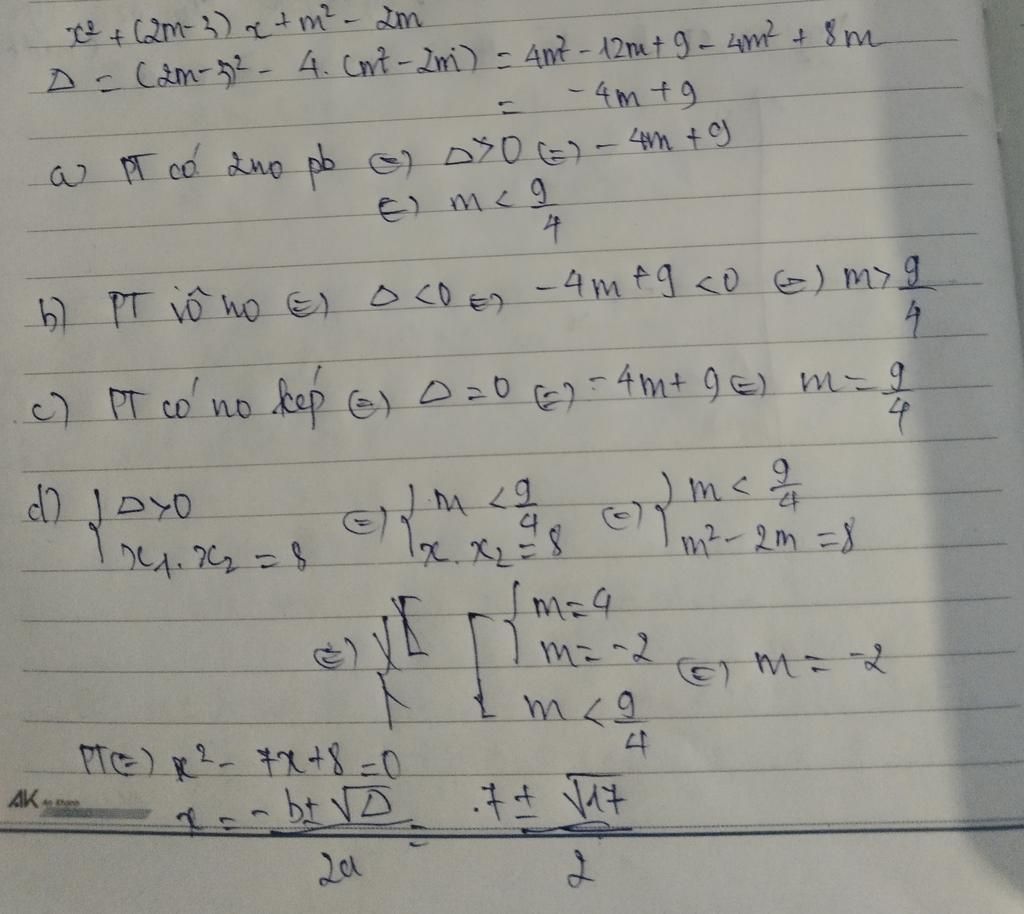 x² + (2m-3) x + m² - 2m
Δ = (2m-3)² - 4. (m² - 2m) = 4m² - 12m + 9 - 4m² + 8m
= -4m + 9
a) PT có 2no pb (=) Δ>0 (=) - 4m + 9
(=) m < 9/4
b) PT vô no (=) Δ <0 (=) -4m + 9 <0 (=) m > 9/4
c) PT có no kép (=) Δ = 0 (=) -4m + 9 (=) m = 9/4
d) { Δ>0 (=) { m < 9/4 (=) { m < 9/4
x₁. x₂ = 8 x. x₂ = 8 m² - 2m = 8
(=) [ { m = 4
m = -2 (=) m = -2
m < 9/4
PT(=) x² - 7x + 8 = 0
AK
x = -b ± √Δ / 2a = .7 ± √17 / 2